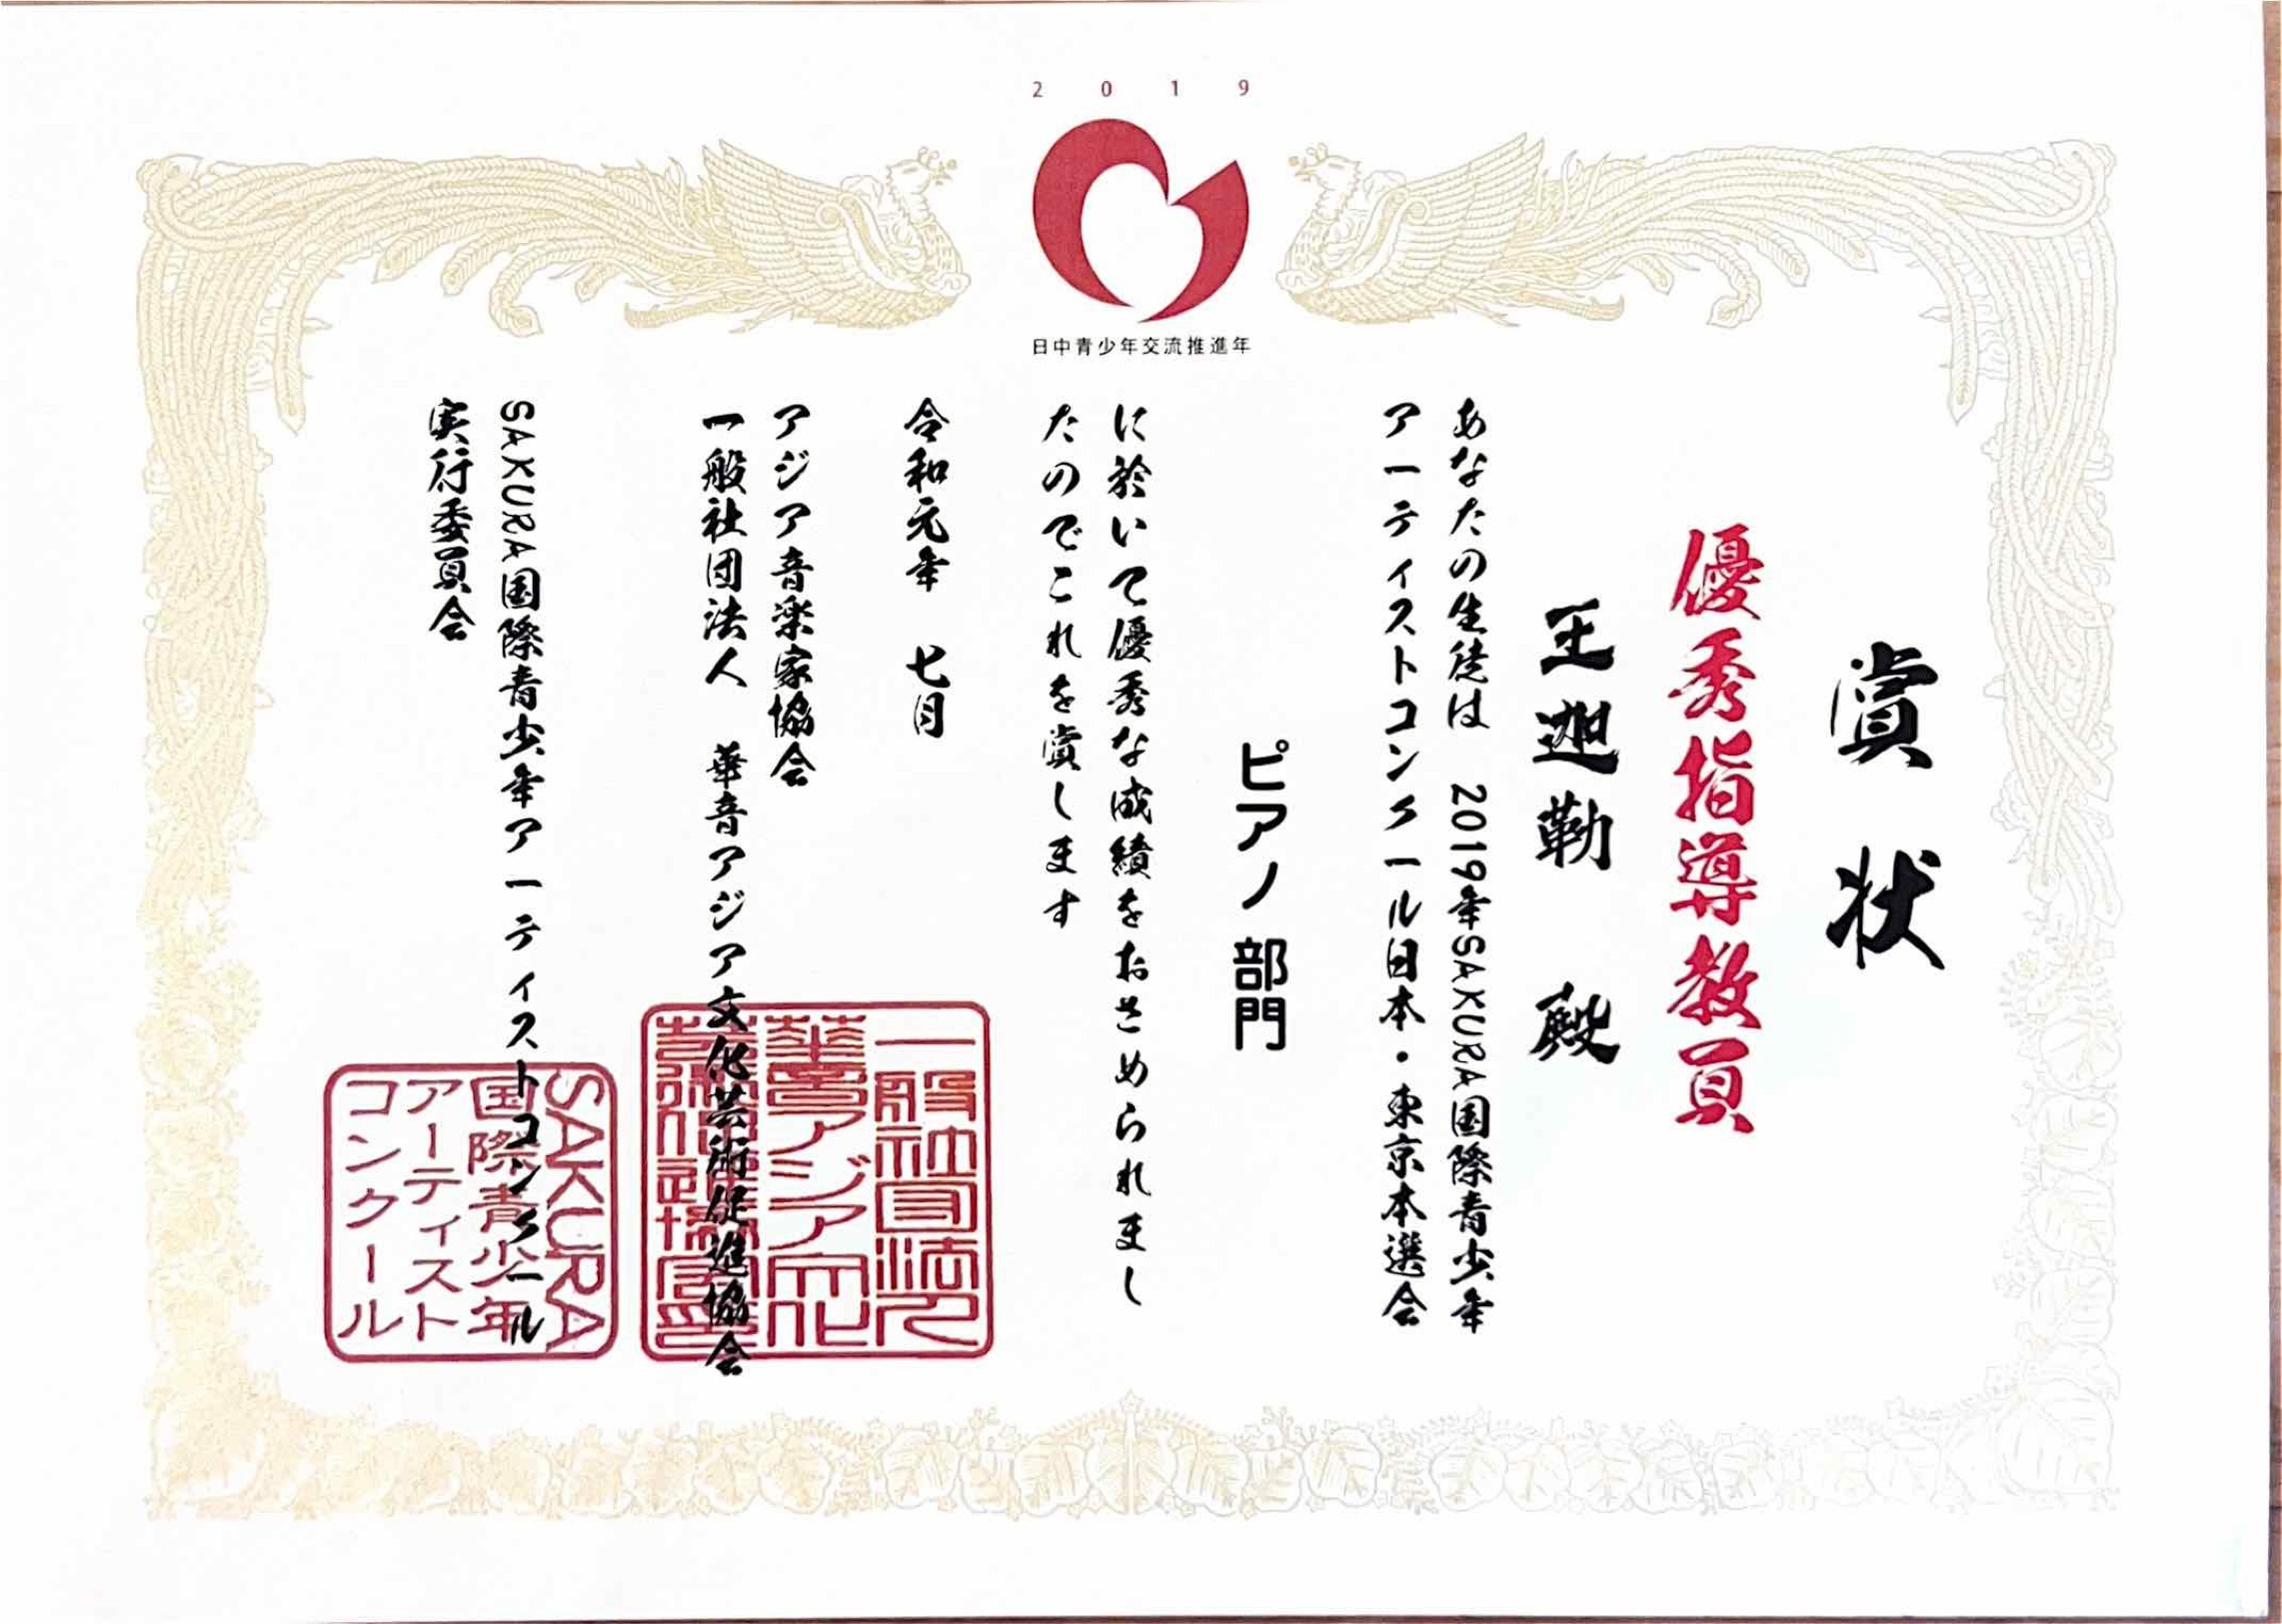 2019
日中青少年交流推進年
賞状
優秀指導教員
王迦勒 殿
あなたの生徒は 2019年SAKURA国際青少年
アーティストコンクール日本・東京本選会
ピアノ部門
に於いて優秀な成績をおさめられまし
たのでこれを賞します
令和元年 七月
アジア音楽家協会
一般社団法人 華音アジア文化芸術促進協会
SAKURA国際青少年アーティストコンクール
実行委員会
一般社団法人
華音アジア文化
SAKURA
国際青少年
アーティスト
コンクール